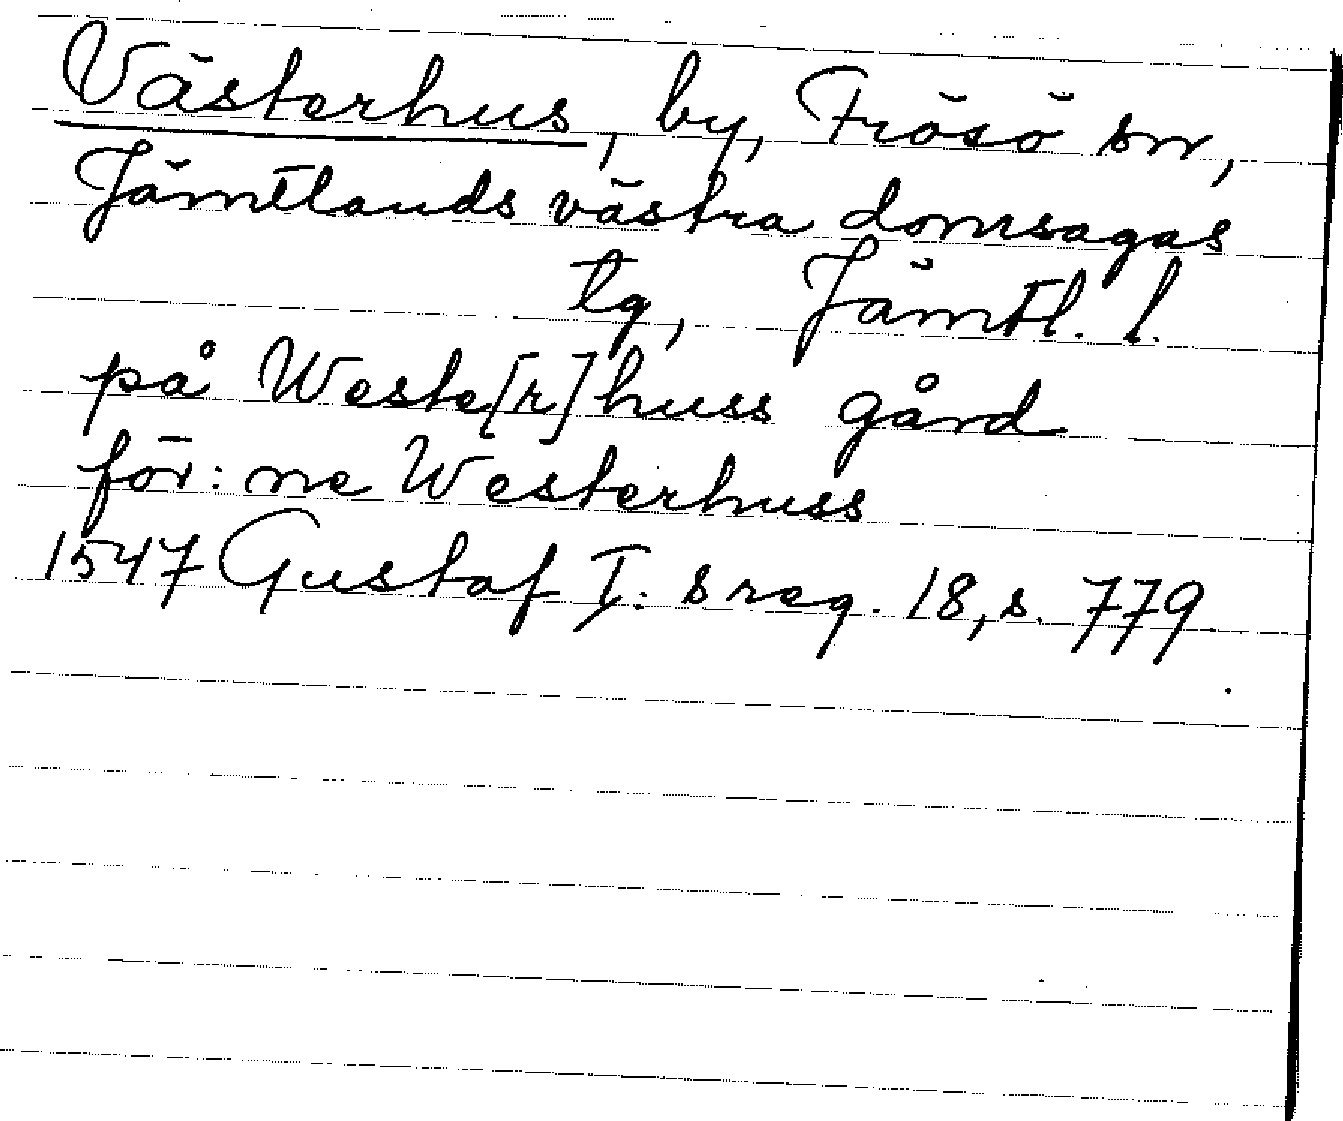 Västerhus, by, Frösö sn,
Jämtlands västra domsagas
tg, Jämtl. l.
på Weste[r]huss gård
för:ne Westerhuss
1547 Gustaf I:s reg. 18, s. 779